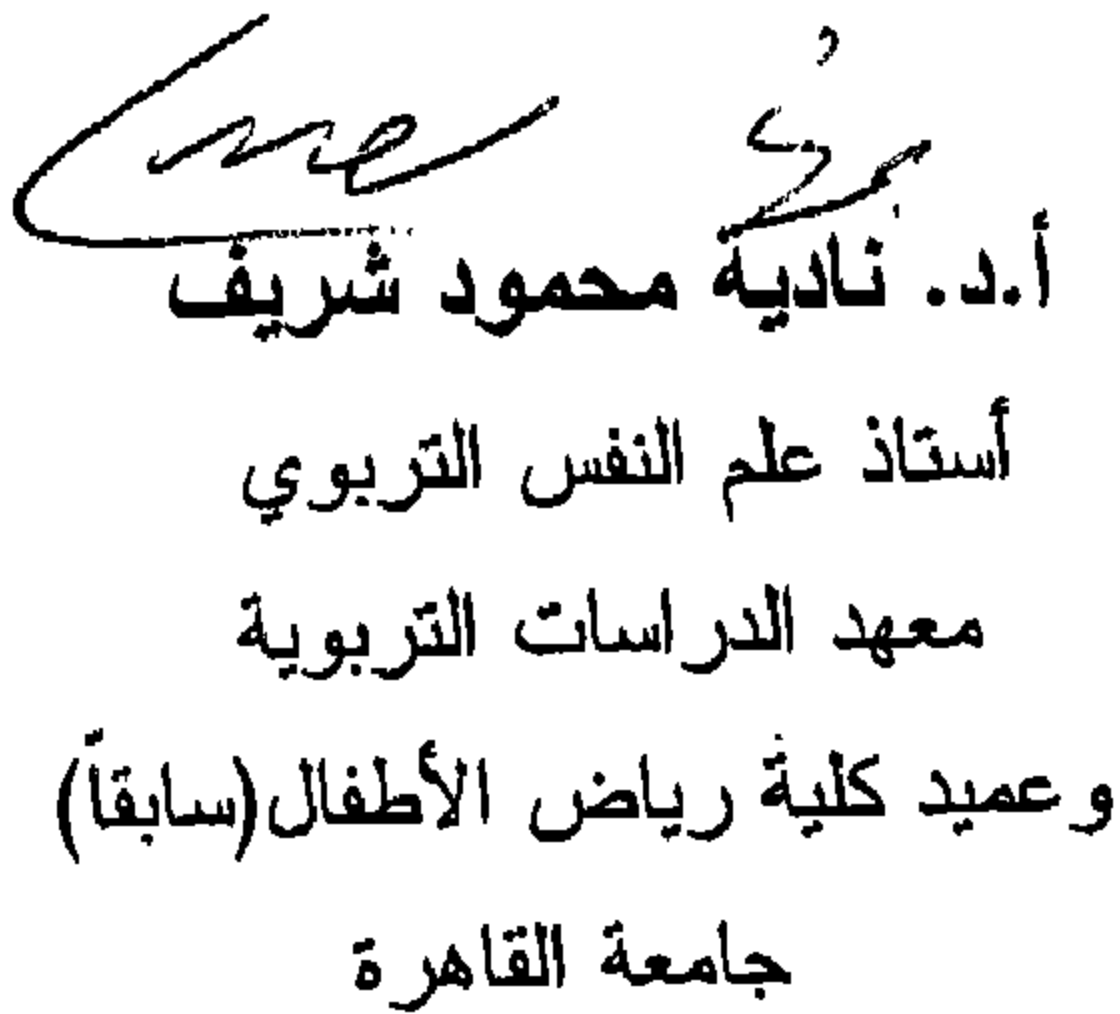 أ.د. نادية محمود شريف
أستاذ علم النفس التربوي
معهد الدراسات التربوية
وعميد كلية رياض الأطفال(سابقاً)
جامعة القاهرة